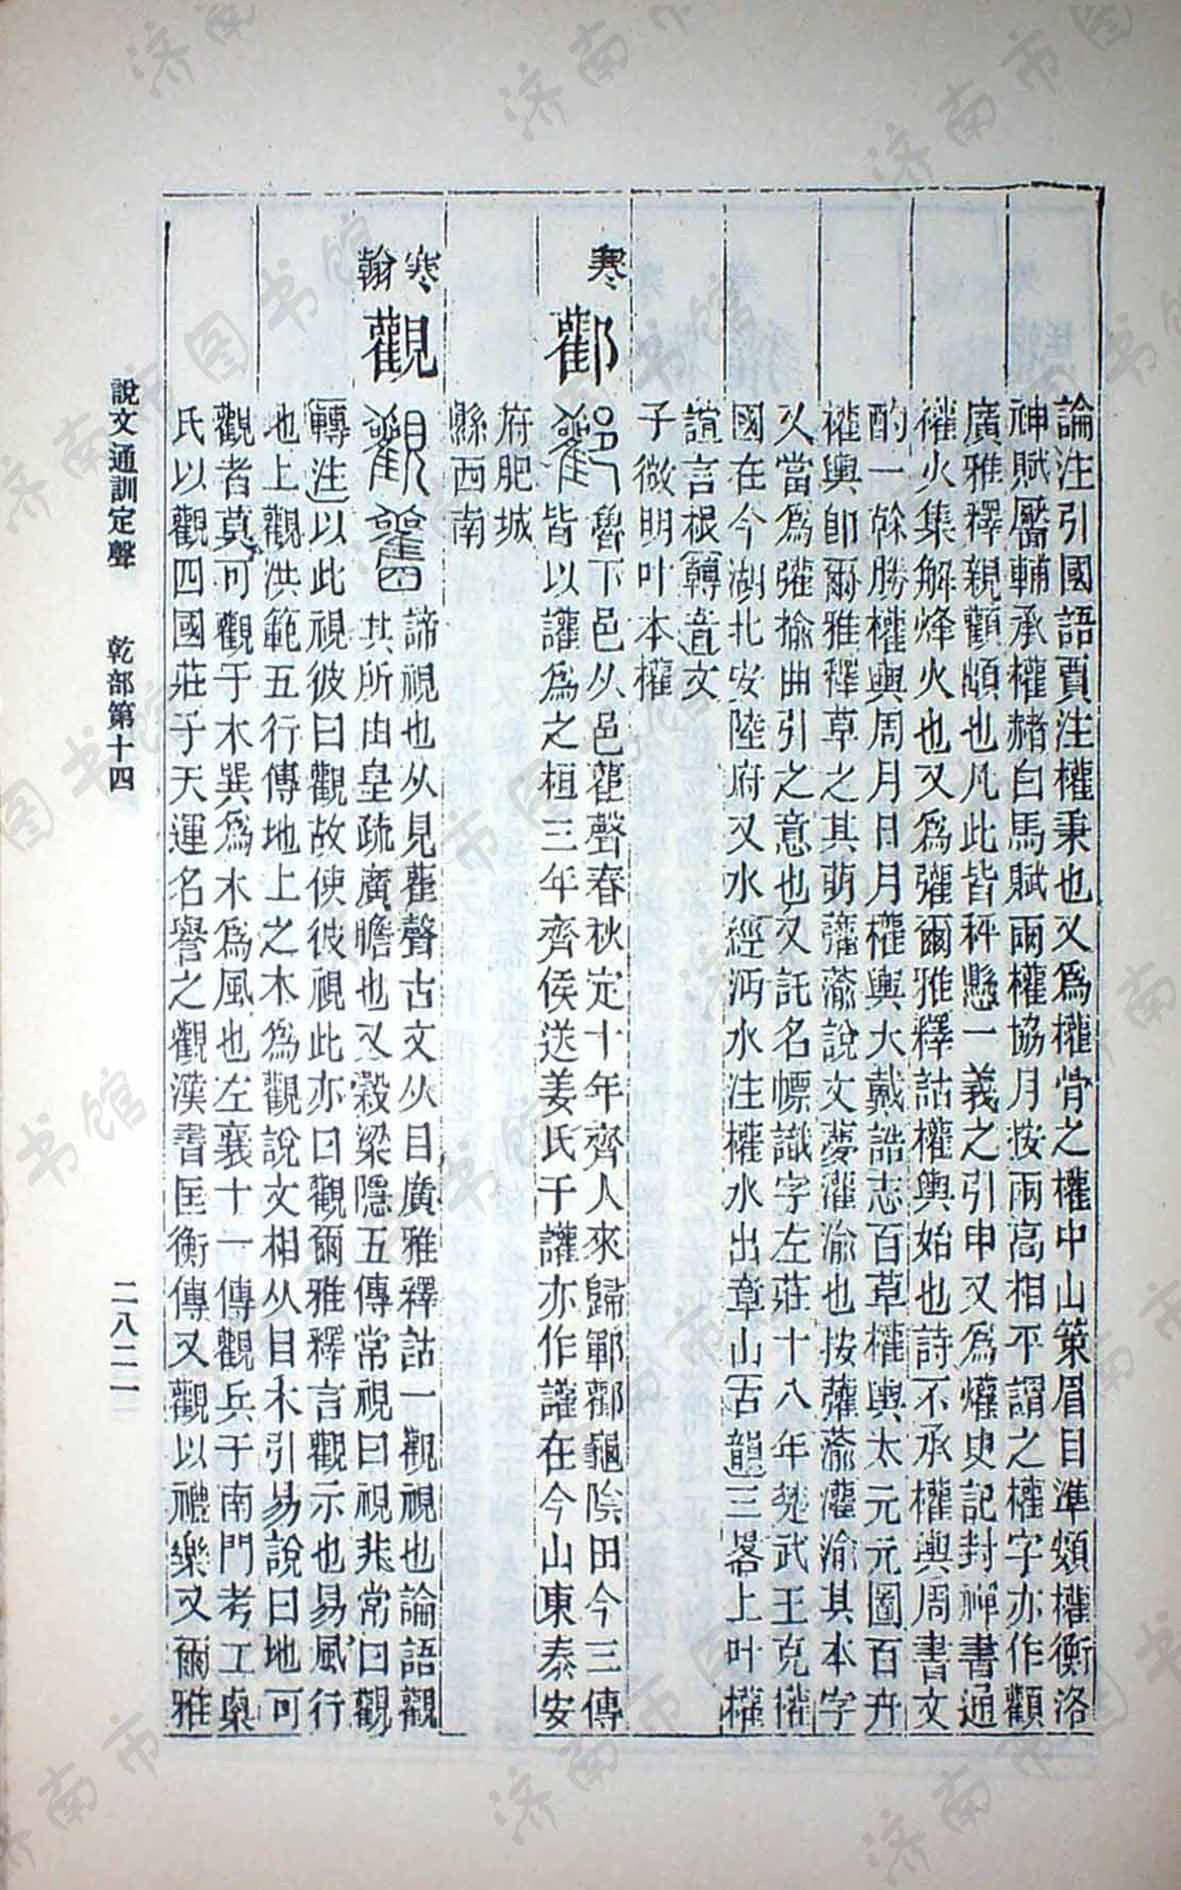 論注引國語賈注權秉也又爲權骨之權中山策眉目準頞權衡洛
神賦靨輔承權赭白馬賦兩權協月按兩高相平謂之權字亦作顴
廣雅釋親顴頄也凡此皆秤懸一義之引申又爲爟史記封禪書通
權火集解烽火也又爲虇爾雅釋詁權輿始也詩不承權輿周書文
酌一榦勝權輿周月日月權輿大戴誥志百草權輿太元元圖百卉
權輿卽爾雅釋草之其萌虇蕍說文夢灌渝也按虇蕍灌渝其本字
又當爲虇揄曲引之意也又託名幖識字左莊十八年楚武王克權
國在今湖北安陸府又水經沔水注權水出章山古韻三畧上叶權
誼言根轉音文
子微明叶本權
寒
酄
魯下邑从邑雚聲春秋定十年齊人來歸鄆酄龜陰田今三傳
皆以讙爲之桓三年齊侯送姜氏于讙亦作讙在今山東泰安
府肥城
縣西南
寒
翰
觀
諦視也从見雚聲古文从目廣雅釋詁一觀視也論語觀
其所由皇疏廣瞻也又穀梁隱五傳常視曰視非常曰觀
轉注以此視彼曰觀故使彼視此亦曰觀爾雅釋言觀示也易風行
地上觀洪範五行傳地上之木爲觀說文相从目木引易說曰地可
觀者莫可觀于木巽爲木爲風也左襄十一傳觀兵于南門考工㮚
氏以觀四國莊子天運名譽之觀漢書匡衡傳又觀以禮樂又爾雅
說文通訓定聲 乾部第十四 二八二一
济南市图书馆